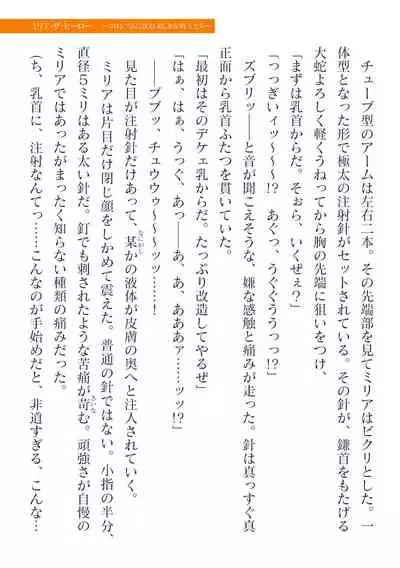 ミリア・ザ・ヒーロー
チューブ型のアームは左右二本。その先端部を見てミリアはビクリとした。一
体型となった形で極太の注射針がセットされている。その針が、鎌首をもたげる
大蛇よろしく軽くうねってから胸の先端に狙いをつけ、
「まずは乳首からだ。そぉら、いくぜぇ？」
「っつぎぃィッ〜〜〜!? あぐっ、うぐぐううっっ!?」
ズブリッ――と音が聞こえそうな、嫌な感触と痛みが走った。針は真っすぐ真
正面から乳首ふたつを貫いていた。
「最初はそのデケェ乳からだ。たっぷり改造してやるぜ」
「はぁ、はぁ、うっぐ、あっ――あ、あ、あああァ……ッッ!?」
――ブブッ、チュウウゥ〜〜〜ッッ……！
見た目が注射針だけあって、某かの液体が皮膚の奥へと注入されていく。
なにがし
ミリアは片目だけ閉じ顔をしかめて震えた。普通の針ではない。小指の半分、
直径５ミリはある太い針だ。釘でも刺されたような苦痛が苛む。頑強さが自慢の
さいな
ミリアではあったがまったく知らない種類の痛みだった。
（ち、乳首に、注射なんてっ……こんなのが手始めだと、非道すぎる、こんな…